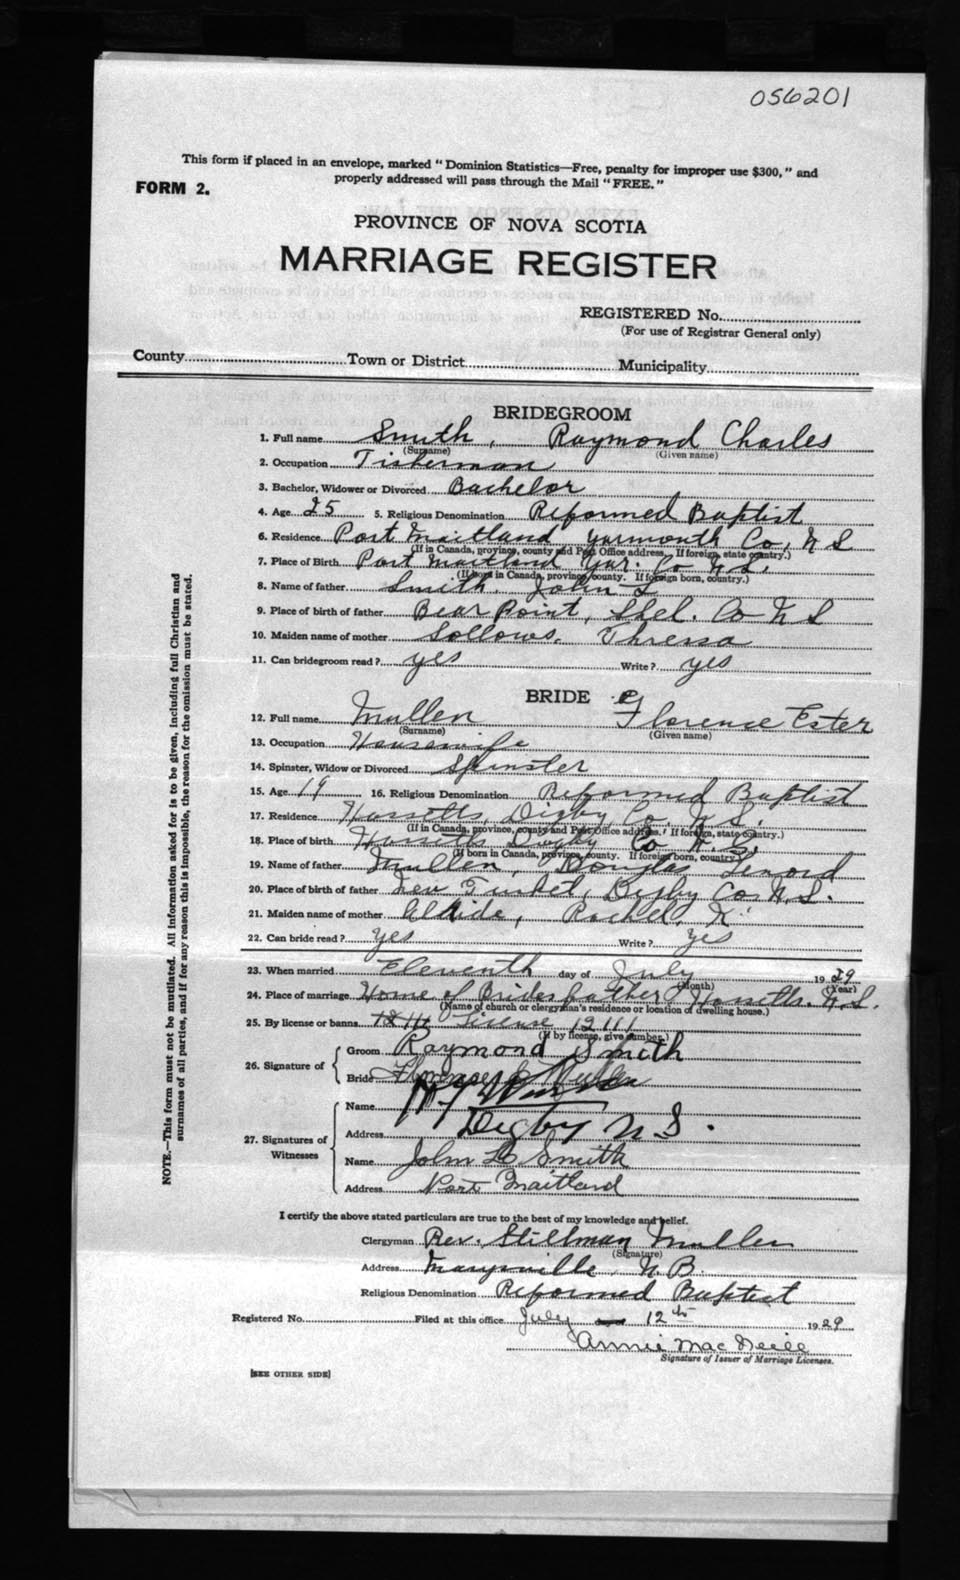 056201
This form if placed in an envelope, marked "Dominion Statistics—Free, penalty for improper use $300," and
properly addressed will pass through the Mail "FREE."
FORM 2.
PROVINCE OF NOVA SCOTIA
MARRIAGE REGISTER
REGISTERED No.
(For use of Registrar General only)
County Town or District Municipality
BRIDEGROOM
1. Full name Smith, Raymond Charles
(Surname) (Given name)
2. Occupation Fisherman
3. Bachelor, Widower or Divorced Bachelor
4. Age 25 5. Religious Denomination Reformed Baptist
6. Residence Port Maitland Yarmouth Co, N S
(If in Canada, province, county and Post Office address. If foreign, state country.)
7. Place of Birth Port Maitland Yar. Co N.S.
(If born in Canada, province, county. If foreign born, country.)
8. Name of father Smith. John L
9. Place of birth of father Bear Point, Shel. Co N S
10. Maiden name of mother Sollows, Thressa
11. Can bridegroom read? yes Write? yes
BRIDE
12. Full name Mullen Florence Ester
(Surname) (Given name)
13. Occupation Housewife
14. Spinster, Widow or Divorced Spinster
15. Age 19 16. Religious Denomination Reformed Baptist
17. Residence Hassetts, Digby Co N.S.
(If in Canada, province, county and Post Office address. If foreign, state country.)
18. Place of birth Hassetts Digby Co N.S.
(If born in Canada, province, county. If foreign born, country.)
19. Name of father Mullen, Douglas Lenord
20. Place of birth of father New Tusket, Digby Co N.S.
21. Maiden name of mother Rachel K
22. Can bride read? yes Write? yes
23. When married Eleventh day of July 1929
(Month) (Year)
24. Place of marriage Home of Brides father Hassetts. N.S.
(Name of church or clergyman's residence or location of dwelling house.)
25. By license or banns License 12111
(If by license, give number.)
26. Signature of Groom Raymond Smith
Bride Florence E Mullen
27. Signatures of Witnesses
Name
Address Digby N S.
Name John L Smith
Address Port Maitland
I certify the above stated particulars are true to the best of my knowledge and belief.
Clergyman Rev. Stillman Mullen
(Signature)
Address Marysville N.B.
Religious Denomination Reformed Baptist
Registered No. Filed at this office July 12th 1929
Annie MacNeill
Signature of Issuer of Marriage Licenses.
[SEE OTHER SIDE]
NOTE.—This form must not be mutilated. All information asked for is to be given, including full Christian and
surnames of all parties, and if for any reason this is impossible, the reason for the omission must be stated.